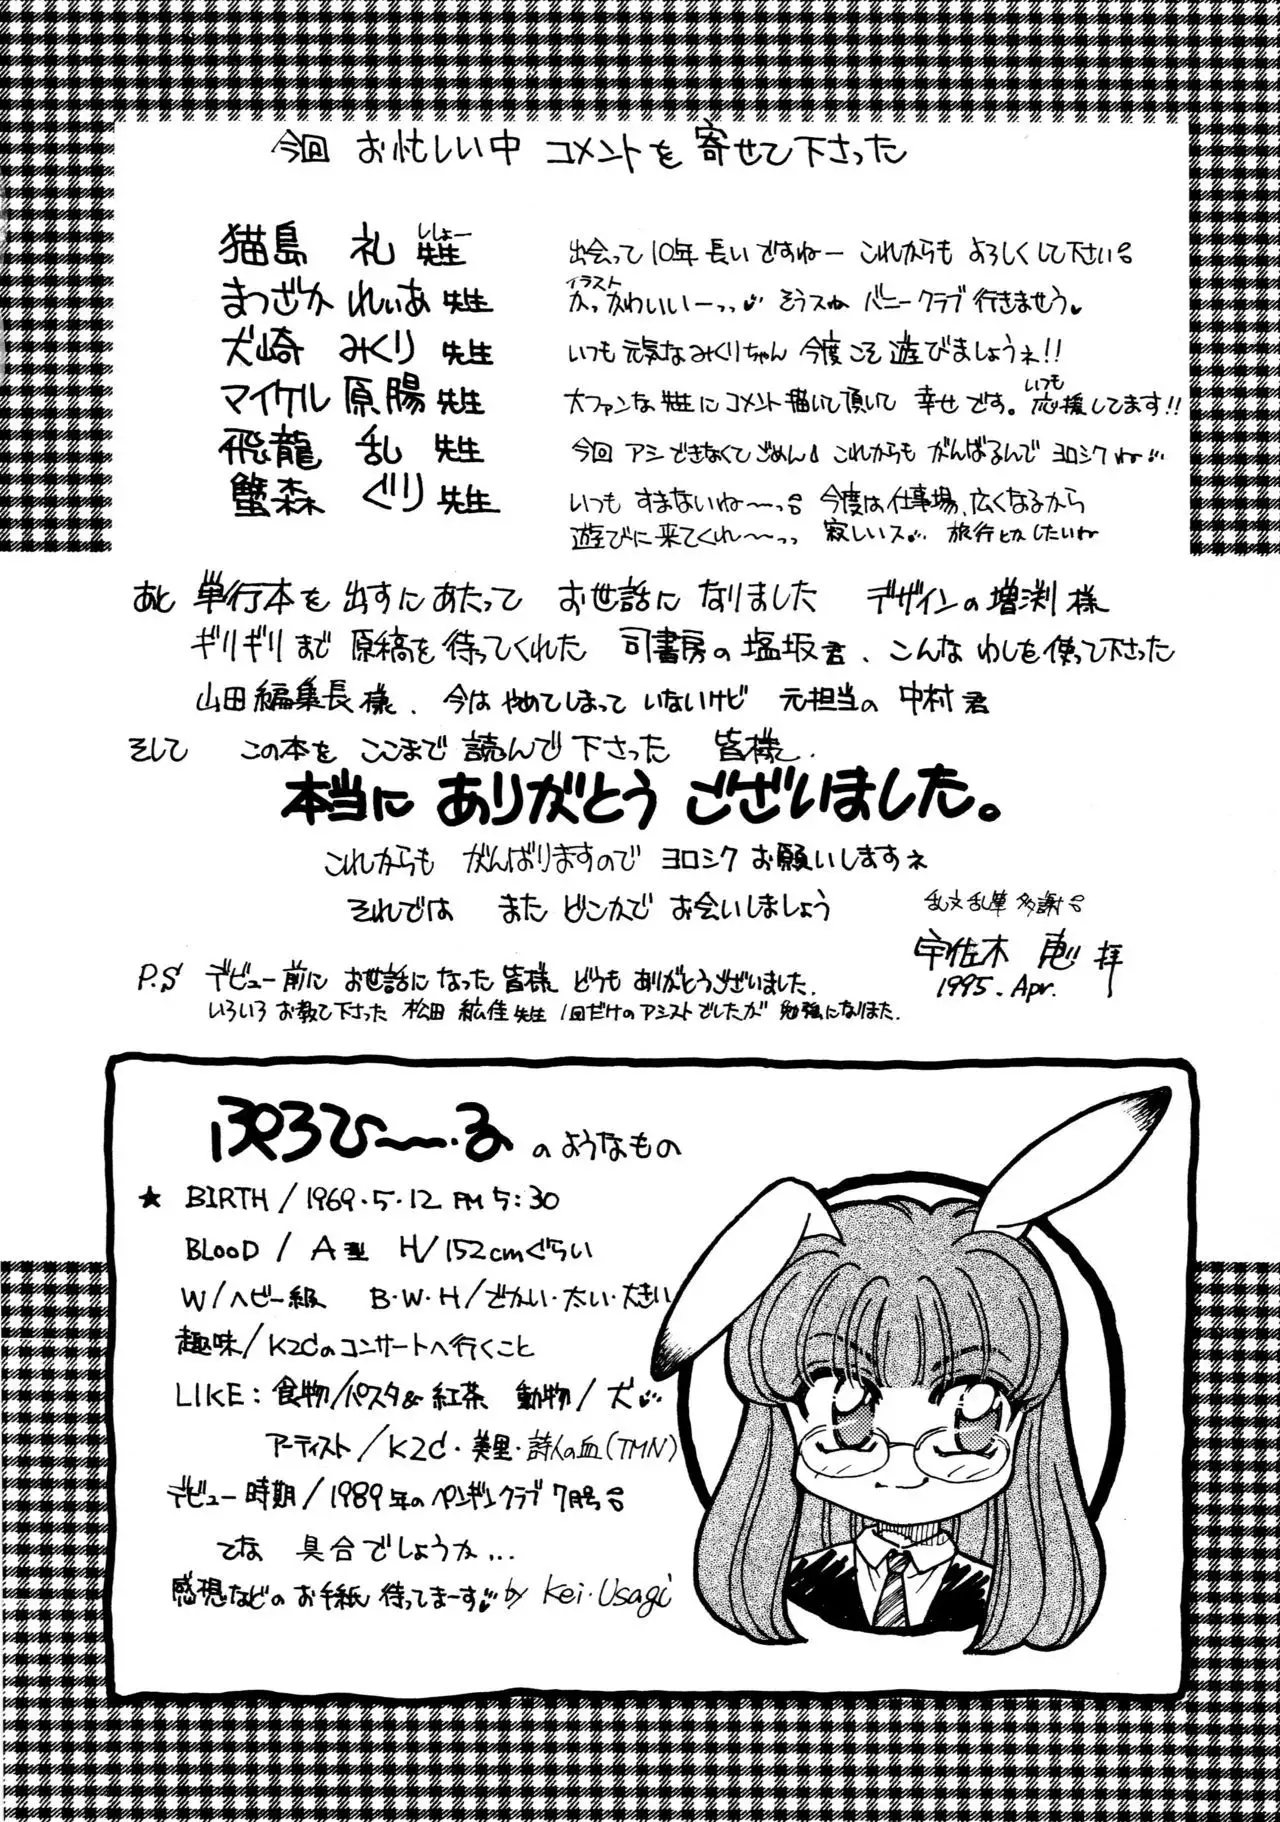 今回 お忙しい中 コメントを 寄せて下さった
猫島 礼 先生 ししょー 出会って 10年 長いですねー これからも よろしくして下さい
まつざか れいあ 先生 イラスト かっかわいいーっっ そうスね バニークラブ 行きませう
犬崎 みくり 先生 いつも 元気な みくりちゃん 今度こそ 遊びましょうネ!!
マイケル 原腸 先生 大ファンな 先生に コメント 描いて頂いて 幸せです。いつも 応援してます!!
飛龍 乱 先生 今回 アシできなくてごめん これからも がんばるんで ヨロシクね
蟹森 ぐり 先生 いつも すまないね〜〜っ 今度は仕事場、広くなるから
遊びに来てくれ〜〜っっ 寂しいス 旅行とかしたいね
あと 単行本を 出すにあたって お世話に なりました デザインの 増渕 様
ギリギリまで 原稿を 待ってくれた 司書房の 塩坂君、こんな わしを使って下さった
山田 編集長 様、今は やめてしまって いないけど 元担当の 中村 君
そして この本を ここまで 読んで 下さった 皆様、
本当に ありがとう ございました。
これからも がんばりますので ヨロシク お願いしますネ
それでは また どこかで お会いしましょう
乱文乱筆 多謝
宇佐木 恵 拝
1995. Apr.
P.S デビュー前に お世話になった 皆様 どうも ありがとうございました.
いろいろ お教え下さった 松田 紘佳 先生 1回だけの アシストでしたが 勉強になりました.
ぷろひ〜〜・る のようなもの
★ BIRTH / 1969・5・12 PM 5:30
BLOOD / A型 H / 152cmぐらい
W / ヘビー級 B・W・H / でかい・太い・大きい
趣味 / K2Cのコンサートへ行くこと
LIKE : 食物 / パスタ& 紅茶 動物 / 犬
アーティスト / K2C・美里・詩人の血 (TMN)
デビュー時期 / 1989年の ペンギンクラブ 7月号
てな 具合でしょうか...
感想などの お手紙 待ってまーす by Kei・Usagi